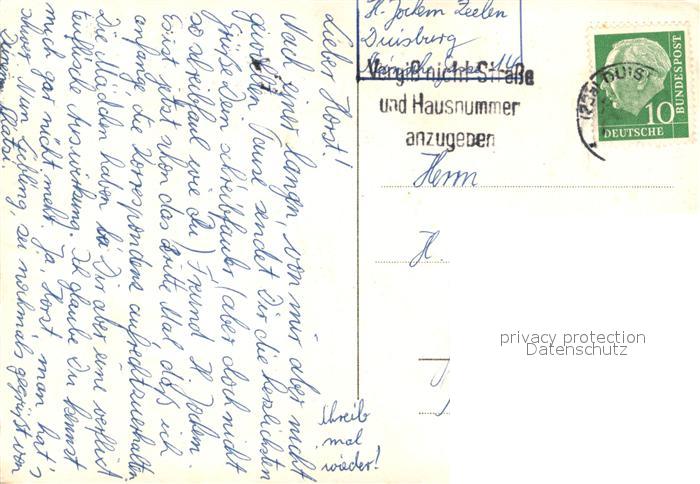 Lieber Horst!
Nach einer langen, von mir aber nicht
gewollten Pause sendet Dir die herzlichsten
Grüße Dein schreibfauler (aber doch nicht
so schreibfaul wie du) Freund H. Jochem.
Es ist jetzt schon das dritte Mal, daß ich
anfange die Korrespondenz aufrechtzuerhalten.
Die Mädchen haben bei Dir aber eine verflixt
teuflische Auswirkung. Ich glaube Du kennst
mich gar nicht mehr. Ja, Horst man hat's
schwer. Nun Liebling, sei nochmals gegrüßt von
Deinem
Schreib
mal
wieder!
H. Jochem Zeelen
Duisburg
Vergiß nicht Straße
und Hausnummer
anzugeben
DUISB
DEUTSCHE
BUNDESPOST
10
Herrn
H.
privacy protection
Datenschutz